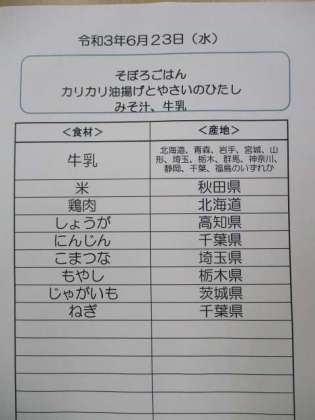 令和3年6月23日（水）
そぼろごはん
カリカリ油揚げとやさいのひたし
みそ汁、牛乳
＜食材＞ ＜産地＞
牛乳 北海道、青森、岩手、宮城、山
形、埼玉、栃木、群馬、神奈川、
静岡、千葉、福島のいずれか
米 秋田県
鶏肉 北海道
しょうが 高知県
にんじん 千葉県
こまつな 埼玉県
もやし 栃木県
じゃがいも 茨城県
ねぎ 千葉県